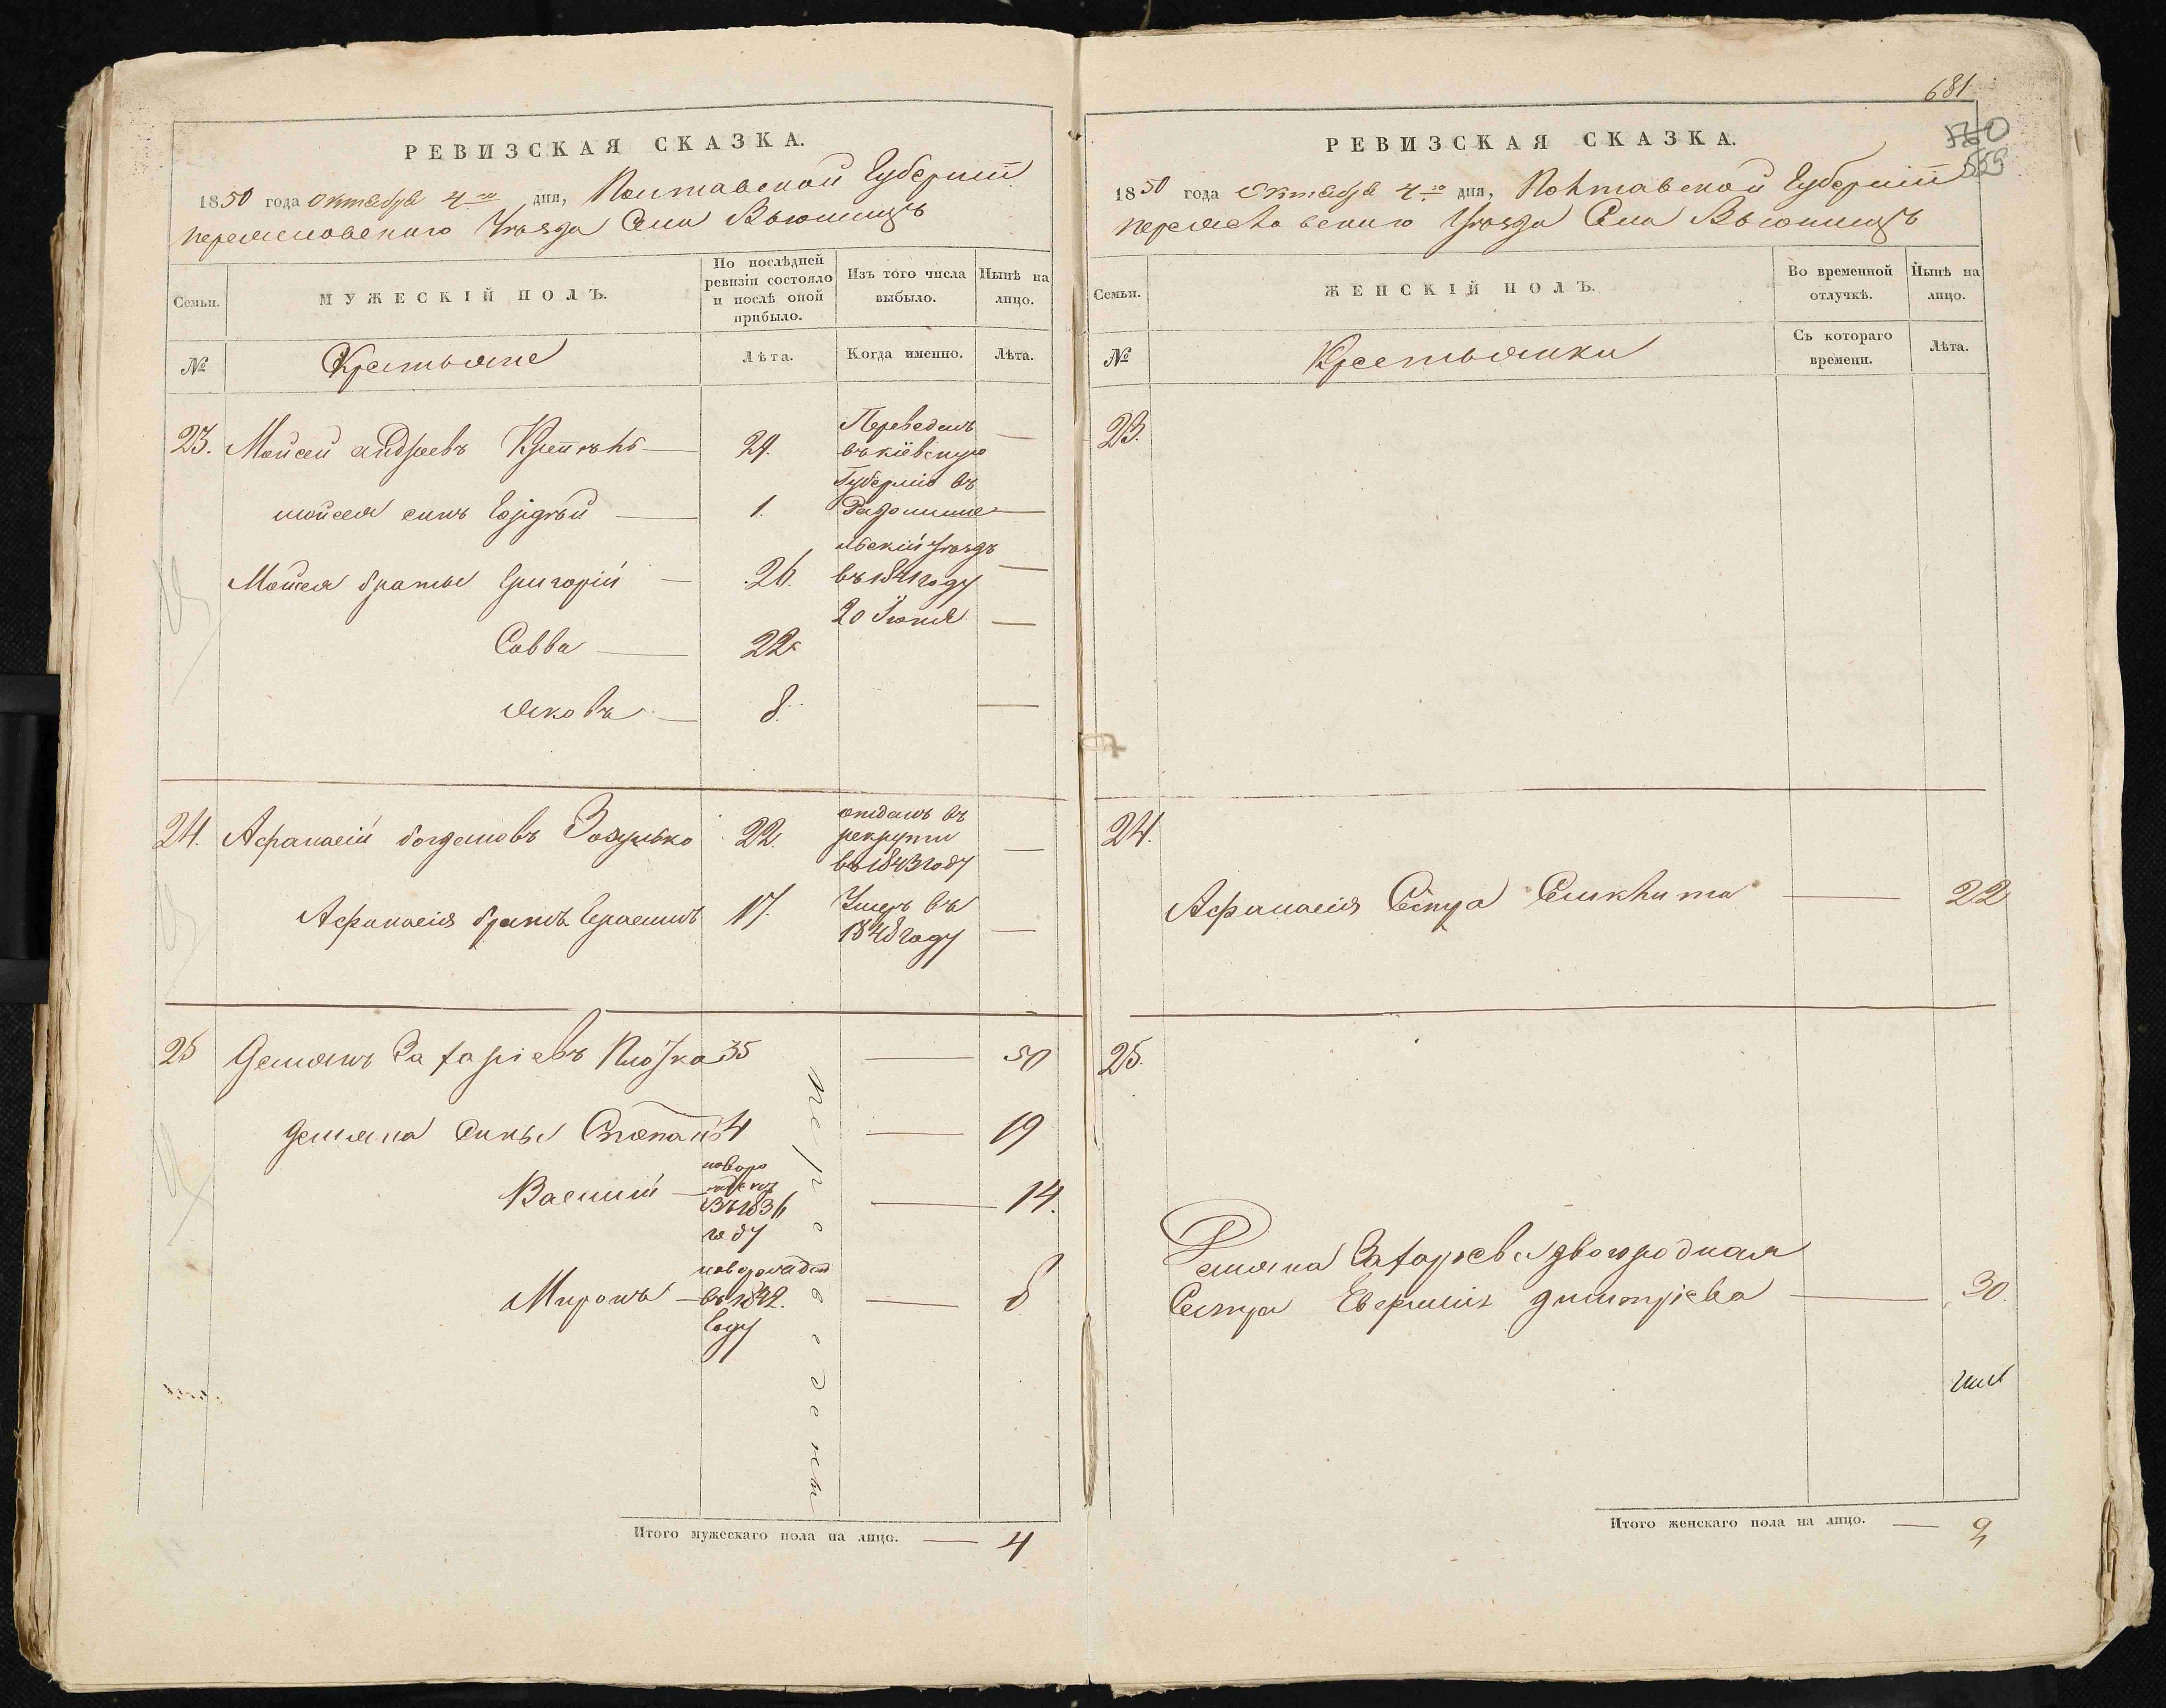 РЕВИЗСКАЯ СКАЗКА.
1850 года октября 4го дня, Полтавской Губернiи
переяславскаго Уѣзда Села Вьюнищъ
Семьи.
МУЖЕСКІЙ ПОЛЪ.
По послѣдней ревизіи состояло и послѣ оной прибыло.
Изъ того числа выбыло.
Нынѣ на лицо.
№
Крестьяне
Лѣта.
Когда именно.
Лѣта.
23. Мойсей андреевъ 24. Переведенъ —
въ кіевскую
Губернію въ
мойсея сынъ 1. Радомыше —
льскій уѣздъ
Мойсея братья Григорій — 26. въ 1841 году —
20 Іюня —
Савва — 22.
яковъ — 8. —
24. Афанасій богдановъ Зозулько 22. отданъ въ
рекруты —
въ 1843 году
Афанасія братъ Герасимъ 17. Умеръ въ
1848 году —
25 Демянъ Захаріевъ 35 — 50
демяна сынья Степанъ 4 — 19
Василій — новоро
жденъ
въ 1836
году — 14.
Миронъ — новорожден
въ 1842.
году — 8
переведены
Итого мужескаго пола на лицо. — 4
681
560
559
РЕВИЗСКАЯ СКАЗКА.
1850 года Октября 4го дня, Полтавской Губерніи
переяславскаго Уѣзда Села Вьюнищъ
Семьи.
ЖЕНСКІЙ ПОЛЪ.
Во временной отлучкѣ.
Нынѣ на лицо.
№
Крестьянки
Съ котораго времени.
Лѣта.
23.
24.
Афанасія Сестра — 22
25.
Демяна Захарьева двоюродная
Сестра Евфимія дмитріева — 30.
Итого женскаго пола на лицо. — 2